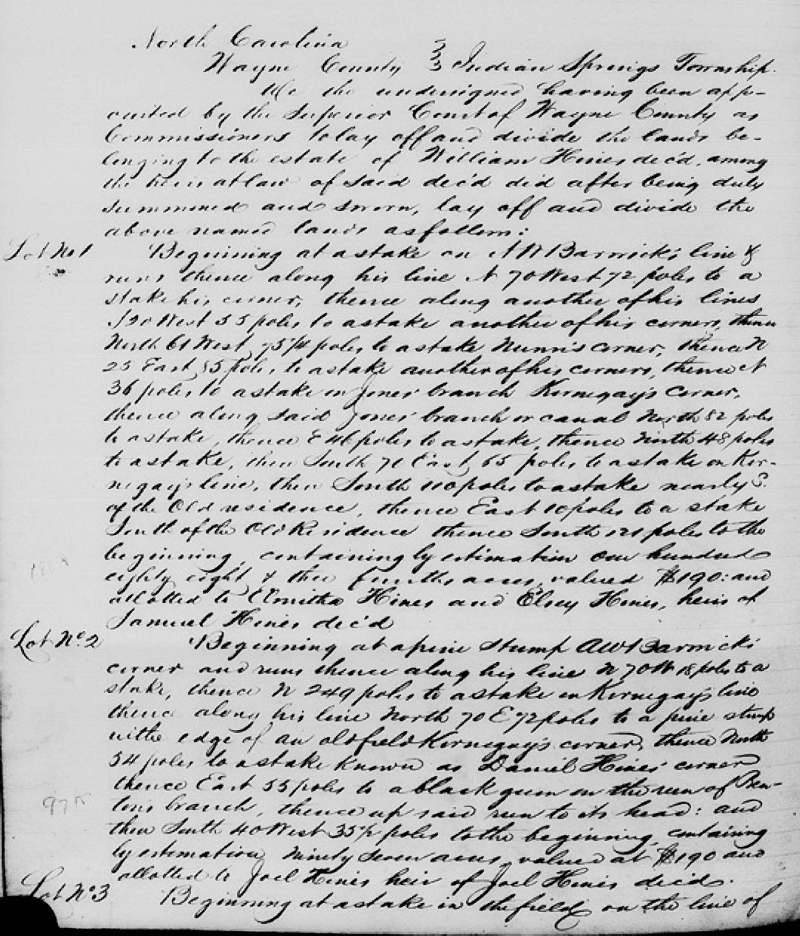 North Carolina
Wayne County } Indian Springs Township.
We the undersigned having been app-
ointed by the Superior Court of Wayne County as
Commissioners to lay off and divide the lands be-
longing to the estate of William Hines dec'd, among
the heirs at law of said dec'd did after being duly
summoned and sworn, lay off and divide the
above named lands as follows:
Lot No 1 Beginning at a stake on A W Barwick's line &
runs thence along his line N 70 West 72 poles to a
stake his corner, thence along another of his lines
20 West 55 poles to a stake another of his corners, thence
North 61 West poles to a stake Nunn's corner, thence N
25 East poles to a stake another of his corners, thence N
36 poles to a stake in Jones' branch Kornegay's corner,
thence along said Jones' branch or canal North 82 poles
to a stake, thence E 46 poles to a stake, thence North 48 poles
to a stake, then South 71 East 65 poles to a stake on Kor-
negay's line, then South 110 poles to a stake nearly S.
of the Old residence, thence East 10 poles to a stake
South of the Old Residence thence South 121 poles to the
beginning, containing by estimation one hundred
eighty eight & three fourths acres, valued $190: and
allotted to Hines and Elsey Hines, heirs of
Samuel Hines dec'd
Lot No. 2 Beginning at a pine stump A W Barwick's
corner and runs thence along his line N 70 W 18 poles to a
stake, thence N 249 poles to a stake on Kornegay's line
thence along his line North 70 E 72 poles to a pine stump
in the edge of an old field Kornegay's corner, thence North
54 poles to a stake known as Daniel Hines' corner
thence East 55 poles to a black gum in the run of
branch, thence up said run to its head: and
then South 40 West 35 1/2 poles to the beginning, containing
by estimation Ninety Seven acres, valued at $190 and
allotted to Joel Hines heir of Joel Hines dec'd.
Lot No. 3 Beginning at a stake in the field, on the line of